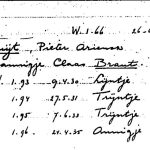 W.1.66 26-
Pieter Ariensz
Claas Braut.
1.93 - 9.4.30 Lijntje
1.94 27.5.31 Trijntje
1.95 7.6.33 Trijntje
1.96 24.4.35 Annigje